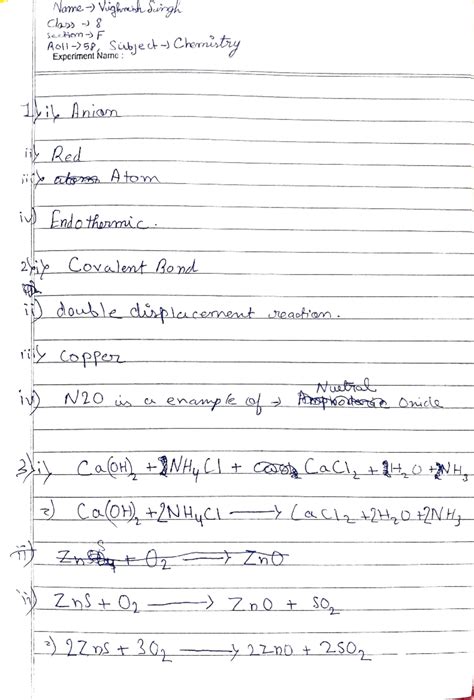 Name → Vighnesh Singh
Class → 8
Section → F
Roll → 58, Subject → Chemistry
Experiment Name :
1) i) Anion
ii) Red
iii) Atom
iv) Endothermic.
2) i) Covalent Bond
ii) double displacement reaction.
iii) Copper
iv) N2O is a example of → Nuetral Oxide
3) i) Ca(OH)₂ + 2NH₄Cl + CaCl₂ + 2H₂O + 2NH₃
2) Ca(OH)₂ + 2NH₄Cl ⟶ CaCl₂ + 2H₂O + 2NH₃
ii) ZnS + O₂ ⟶ ZnO
ii) ZnS + O₂ ⟶ ZnO + SO₂
2) 2ZnS + 3O₂ ⟶ 2ZnO + 2SO₂